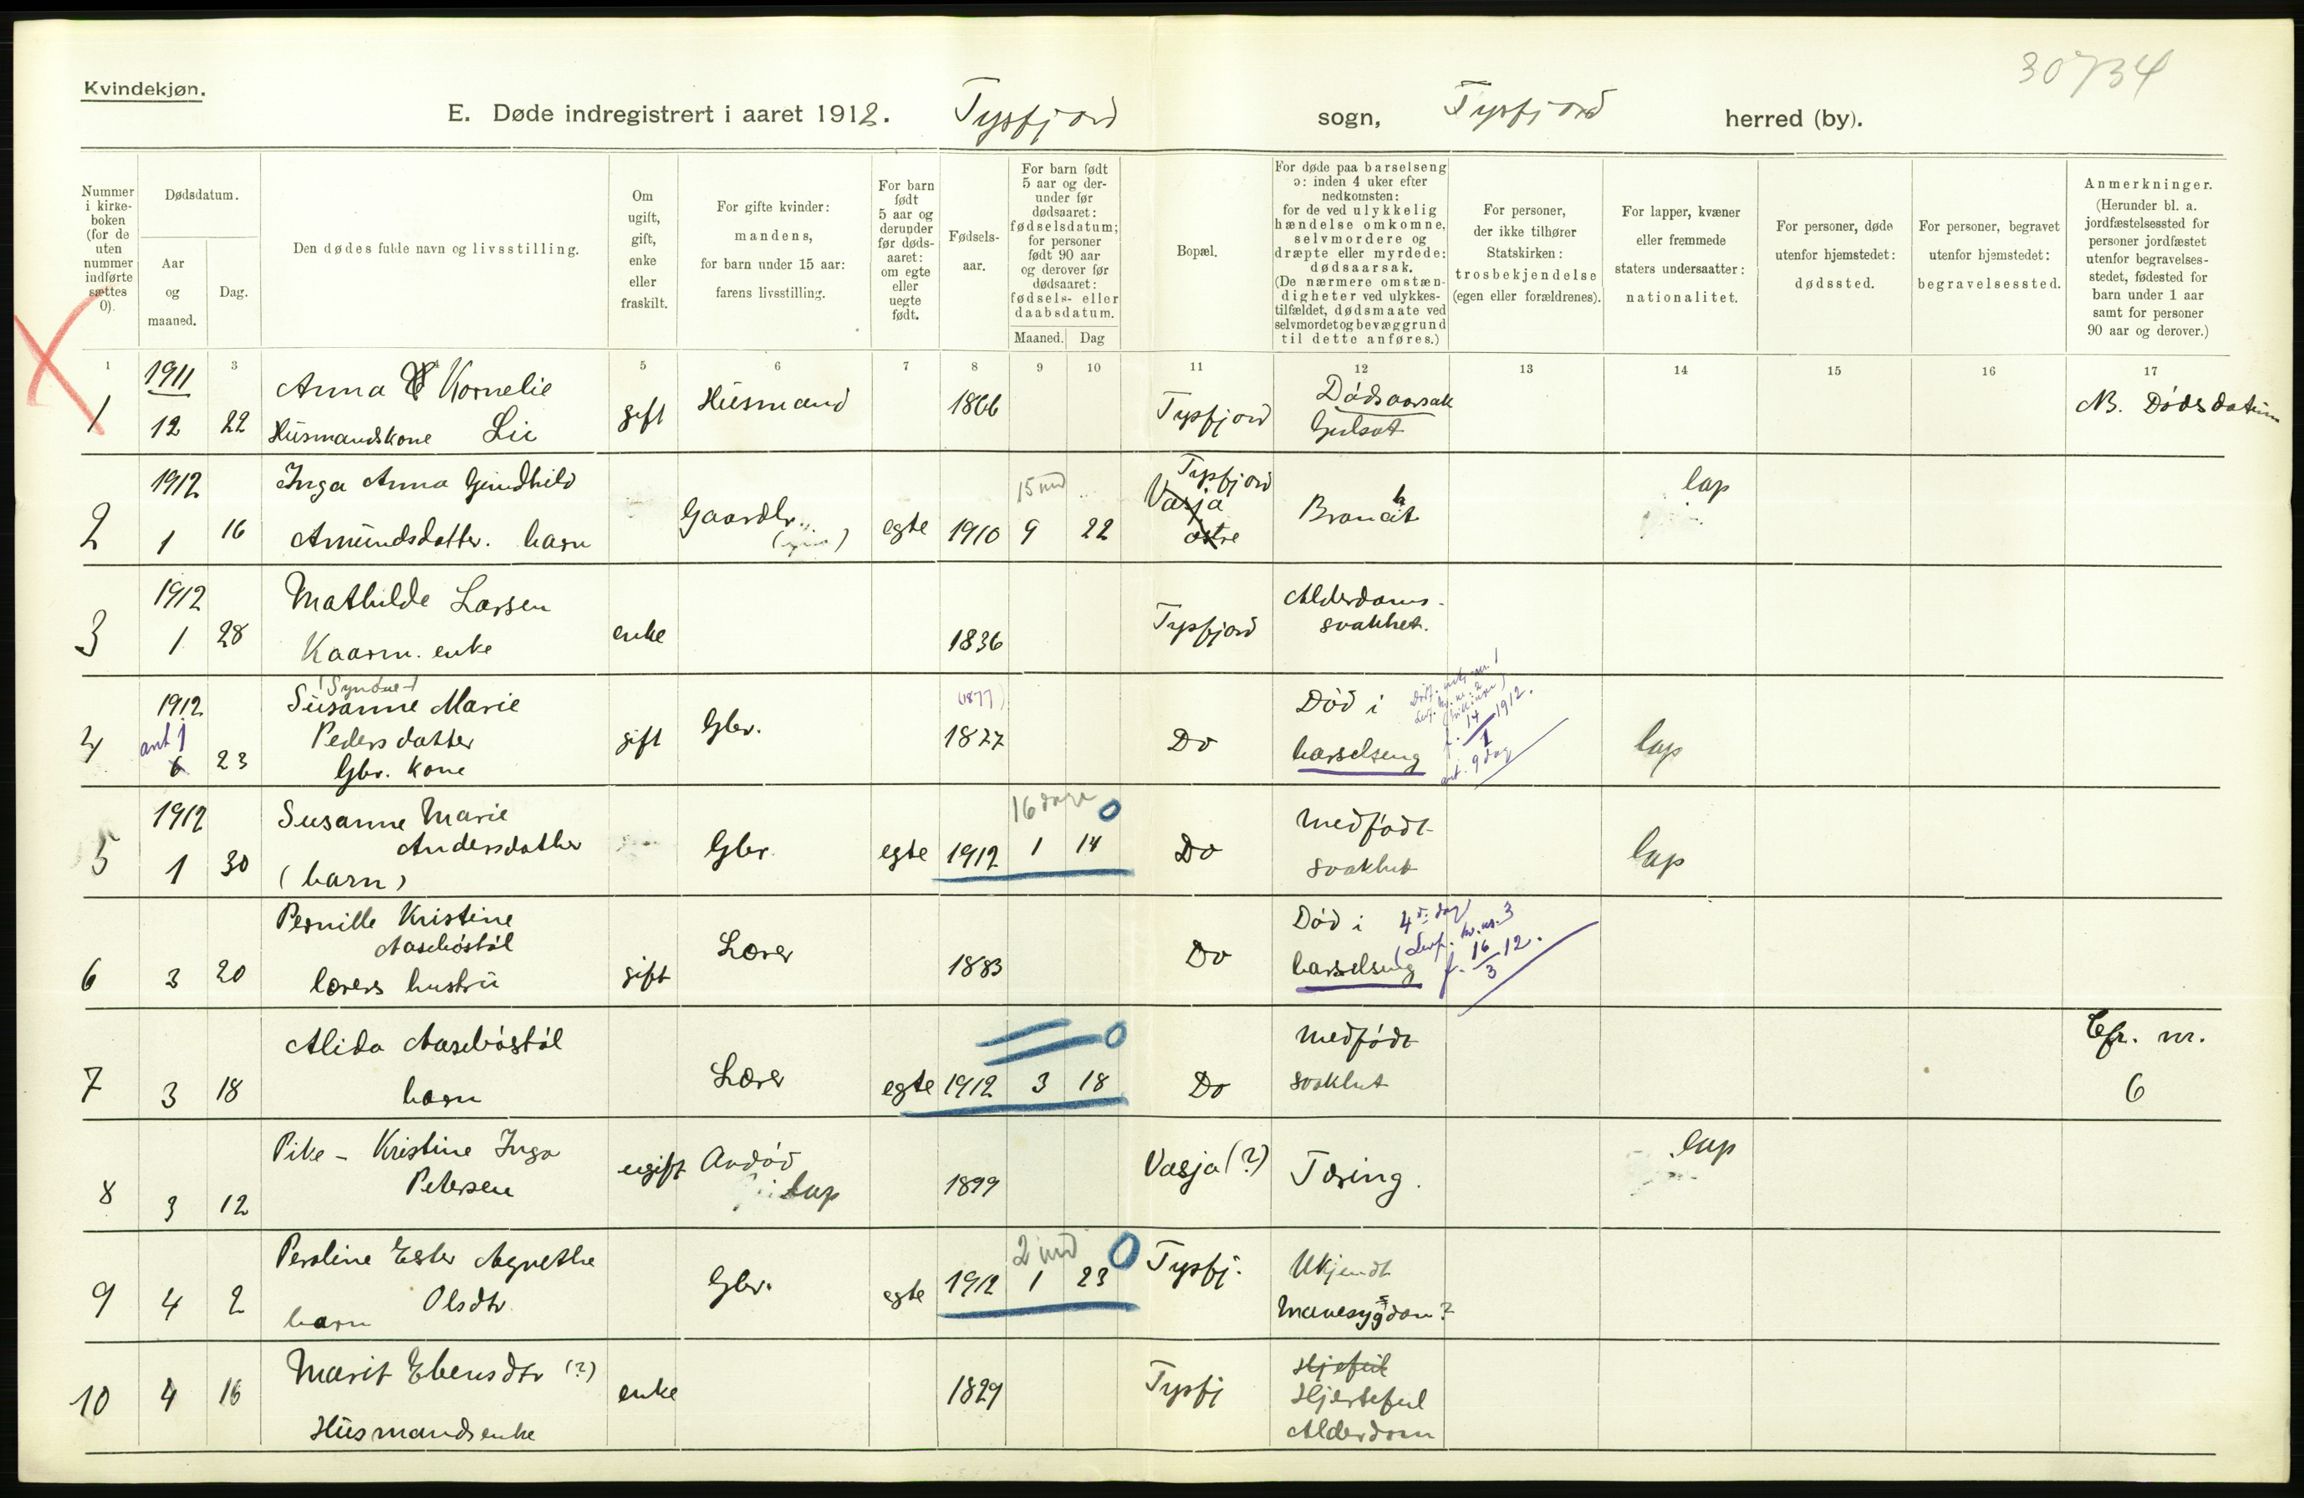 30734
Kvindekjøn.
E. Døde indregistrert i aaret 1912. Tysfjord sogn, Tysfjord herred (by).
Nummer i kirke-boken (for de uten nummer indførte sættes 0).
Dødsdatum.
Aar og maaned.
Dag.
Den dødes fulde navn og livsstilling.
Om ugift, gift, enke eller fraskilt.
For gifte kvinder: mandens, for barn under 15 aar: farens livsstilling.
For barn født 5 aar og derunder før døds-aaret: om egte eller uegte født.
Fødsels-aar.
For barn født 5 aar og der-under før dødsaaret: fødselsdatum; for personer født 90 aar og derover før dødsaaret: fødsels- eller daabsdatum.
Maaned. Dag
Bopæl.
For døde paa barselseng ɔ: inden 4 uker efter nedkomsten: for de ved ulykkelig hændelse omkomne, selvmordere og dræpte eller myrdede: dødsaarsak. (De nærmere omstæn-digheter ved ulykkes-tilfældet, dødsmaate ved selvmordet og bevæggrund til dette anføres.)
For personer, der ikke tilhører Statskirken: trosbekjendelse (egen eller forældrenes).
For lapper, kvæner eller fremmede staters undersaatter: nationalitet.
For personer, døde utenfor hjemstedet: dødssted.
For personer, begravet utenfor hjemstedet: begravelsessted.
Anmerkninger. (Herunder bl. a. jordfæstelsessted for personer jordfæstet utenfor begravelses-stedet, fødested for barn under 1 aar samt for personer 90 aar og derover.)
1 3 5 6 7 8 9 10 11 12 13 14 15 16 17
1 1911 12 22 Anna Kornelie Lie Husmandskone gift Husmand 1866 Tysfjord Dødsaarsak Gulsot NB. Dødsdatum
2 1912 1 16 Inga Anna Gundhild Amundsdatter. barn Gaardbr. egte 1910 15 md 9 22 Tysfjord Vasja østre Brandt lap
3 1912 1 28 Mathilde Larsen Kaarm. enke enke 1836 Tysfjord Alderdoms-svakhet.
4 1912 ant 1 6 23 (Synøve) Susanne Marie Pedersdatter Gbr. kone gift Gbr. (1877) 1827 Do Død i barselseng f. 14/1 1912. ant. 9 dag lap
5 1912 1 30 Susanne Marie Andersdatter (barn) Gbr. egte 1912 16 dage 0 1 14 Do medfødt svakhet lap
6 3 20 Pernille Kristine Aasebøstøl lærers hustru gift Lærer 1883 Do Død i barselseng 4 d. dag (Levf. kv. nr. 3 f. 16/3 12.
7 3 18 Alida Aasebøstøl barn Lærer egte 1912 0 3 18 Do medfødt svakhet Cfr. nr. 6
8 3 12 Pike - Kristine Inga Petersen ugift Avdød lap 1899 Vasja (?) Tæring. lap
9 4 2 Peroline Ester Agnethe Olsdtr. barn Gbr. egte 1912 2 md 0 1 23 Tysfj. Ukjendt Mavesygsdom?
10 4 16 Marit Ebensdtr (?) Husmandsenke enke 1829 Tysfj Hjefeil Hjertefeil Alderdom